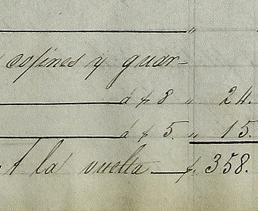 "
cofines y guar-
á f 8 " 24.
á f 5. " 15.
A la vuelta f. 358.